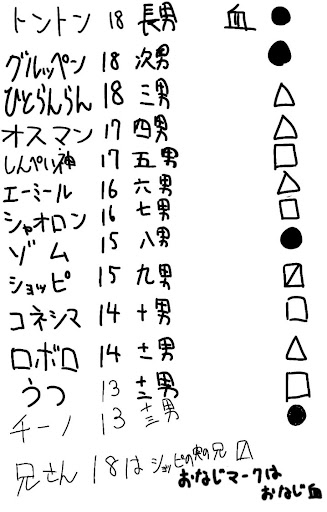 トントン 18 長男 血 ●
グルッペン 18 次男 ●
ひとらんらん 18 三男 △
オスマン 17 四男 △
しんぺい神 17 五男 □
エーミール 16 六男 △
シャオロン 16 七男 □
ゾム 15 八男 ●
ショッピ 15 九男 〼
コネシマ 14 十男 □
ロボロ 14 十一男 △
うつ 13 十二男 □
チーノ 13 十三男 ●
兄さん 18は ショッピの実の兄 〼
おなじマークは
おなじ血